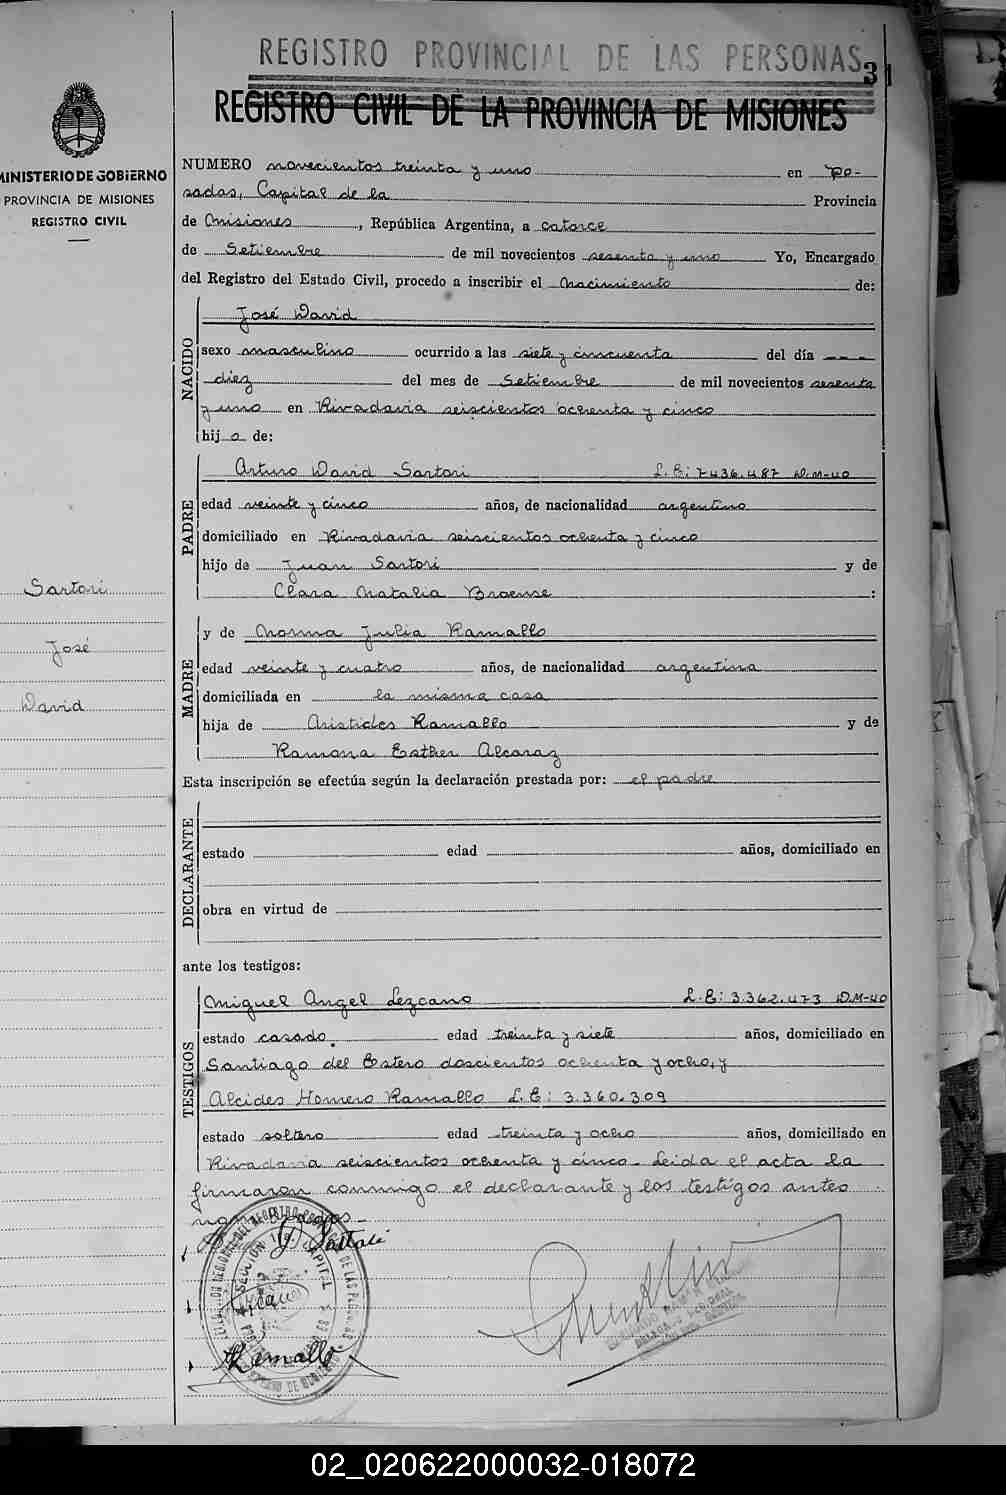 REGISTRO PROVINCIAL DE LAS PERSONAS
31
REGISTRO CIVIL DE LA PROVINCIA DE MISIONES
MINISTERIO DE GOBIERNO
PROVINCIA DE MISIONES
REGISTRO CIVIL
Sartori
José
David
NUMERO novecientos treinta y uno en Po-
sadas, Capital de la Provincia
de Misiones, República Argentina, a catorce
de Setiembre de mil novecientos sesenta y uno Yo, Encargado
del Registro del Estado Civil, procedo a inscribir el nacimiento de:
NACIDO
José David
sexo masculino ocurrido a las siete y cincuenta del día
diez del mes de Setiembre de mil novecientos sesenta
y uno en Rivadavia seiscientos ochenta y cinco
hij o de:
PADRE
Arturo David Sartori L.E: 7436.487 D.M-40
edad veinte y cinco años, de nacionalidad argentino
domiciliado en Rivadavia seiscientos ochenta y cinco
hijo de Juan Sartori y de
Clara Natalia Broense :
MADRE
y de Norma Julia Ramallo
edad veinte y cuatro años, de nacionalidad argentina
domiciliada en la misma casa
hija de Aristides Ramallo y de
Ramona Esther Alcaraz
Esta inscripción se efectúa según la declaración prestada por: el padre
DECLARANTE
estado edad años, domiciliado en
obra en virtud de
ante los testigos:
TESTIGOS
Miguel Angel Lezcano L.E: 3.362.473 D.M-40
estado casado. edad treinta y siete años, domiciliado en
Santiago del Estero doscientos ochenta y ocho, y
Alcides Homero Ramallo L.E: 3.360.309
estado soltero edad treinta y ocho años, domiciliado en
Rivadavia seiscientos ochenta y cinco- Leida el acta la
firmaron conmigo el declarante y los testigos antes
Sartori
Ramallo
02_020622000032-018072